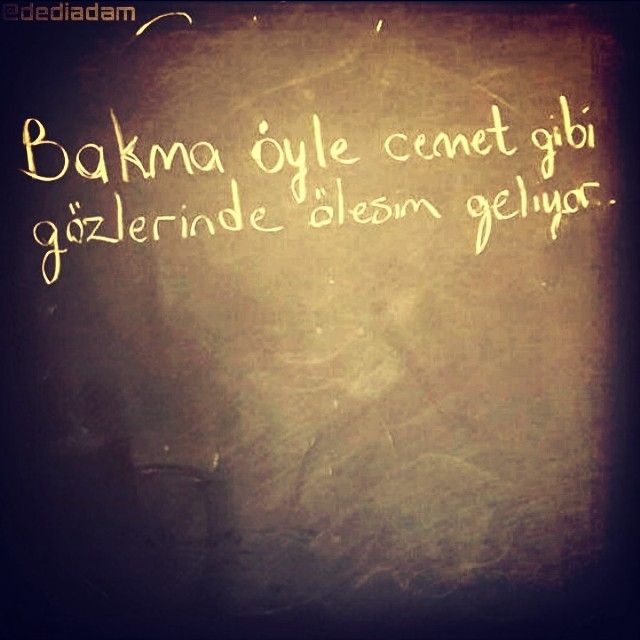 @dediadam
Bakma öyle cennet gibi
gözlerinde ölesim geliyor..